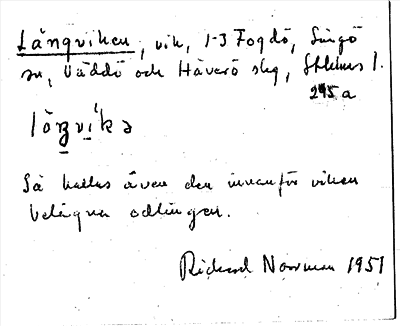 Långviken, vik, 1-3 Fogdö, Singö
sn, Väddö och Häverö skg, Sthlms l.
245a
Så kallas även den innanför viken
belägna odlingen.
Rickard Norrman 1951